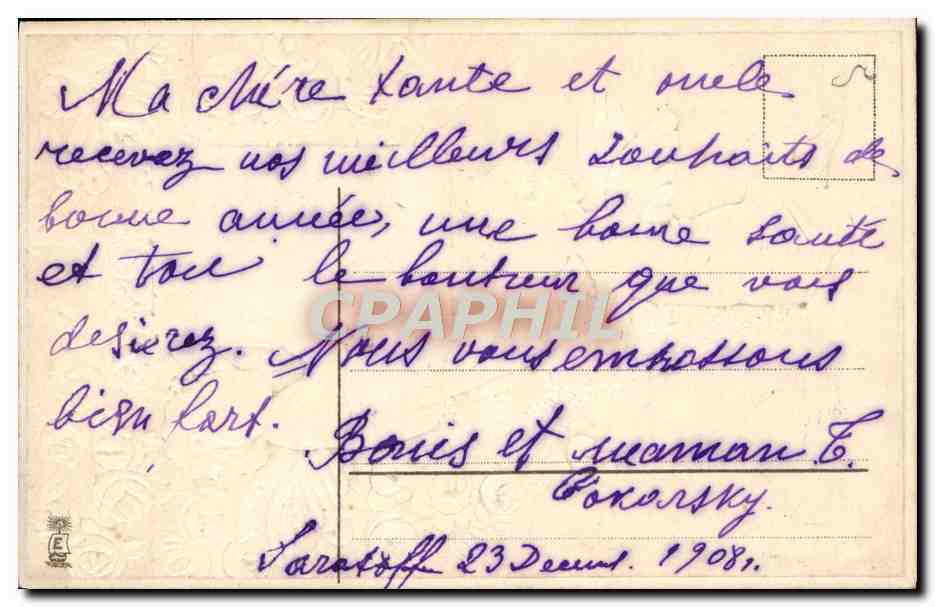 Ma chére tante et oncle
recevez nos meilleurs souhaits de
bonne année, une bonne santé
et tou le bonheur que vous
desirez. Nous vous embrassons
bien fort.
CPARHIL
Boris et maman T.
Tokarsky.
Saratoff 23 Decemb. 1908.
E